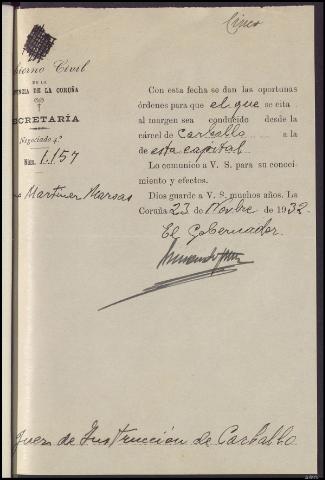 Cinco
bierno Civil
DE LA
VINCIA DE LA CORUÑA
ECRETARÍA
Negociado 4º
NÚM. 1.157
Martinez
Con esta fecha se dan las oportunas
órdenes para que el que se cita
al margen sea conducido desde la
cárcel de Carballo a la
de esta capital
Lo comunico a V. S. para su conoci-
miento y efectos.
Dios guarde a V. S. muchos años. La
Coruña 23 de Novbre de 1932.
El Gobernador.
Juez de Instrucción de Carballo